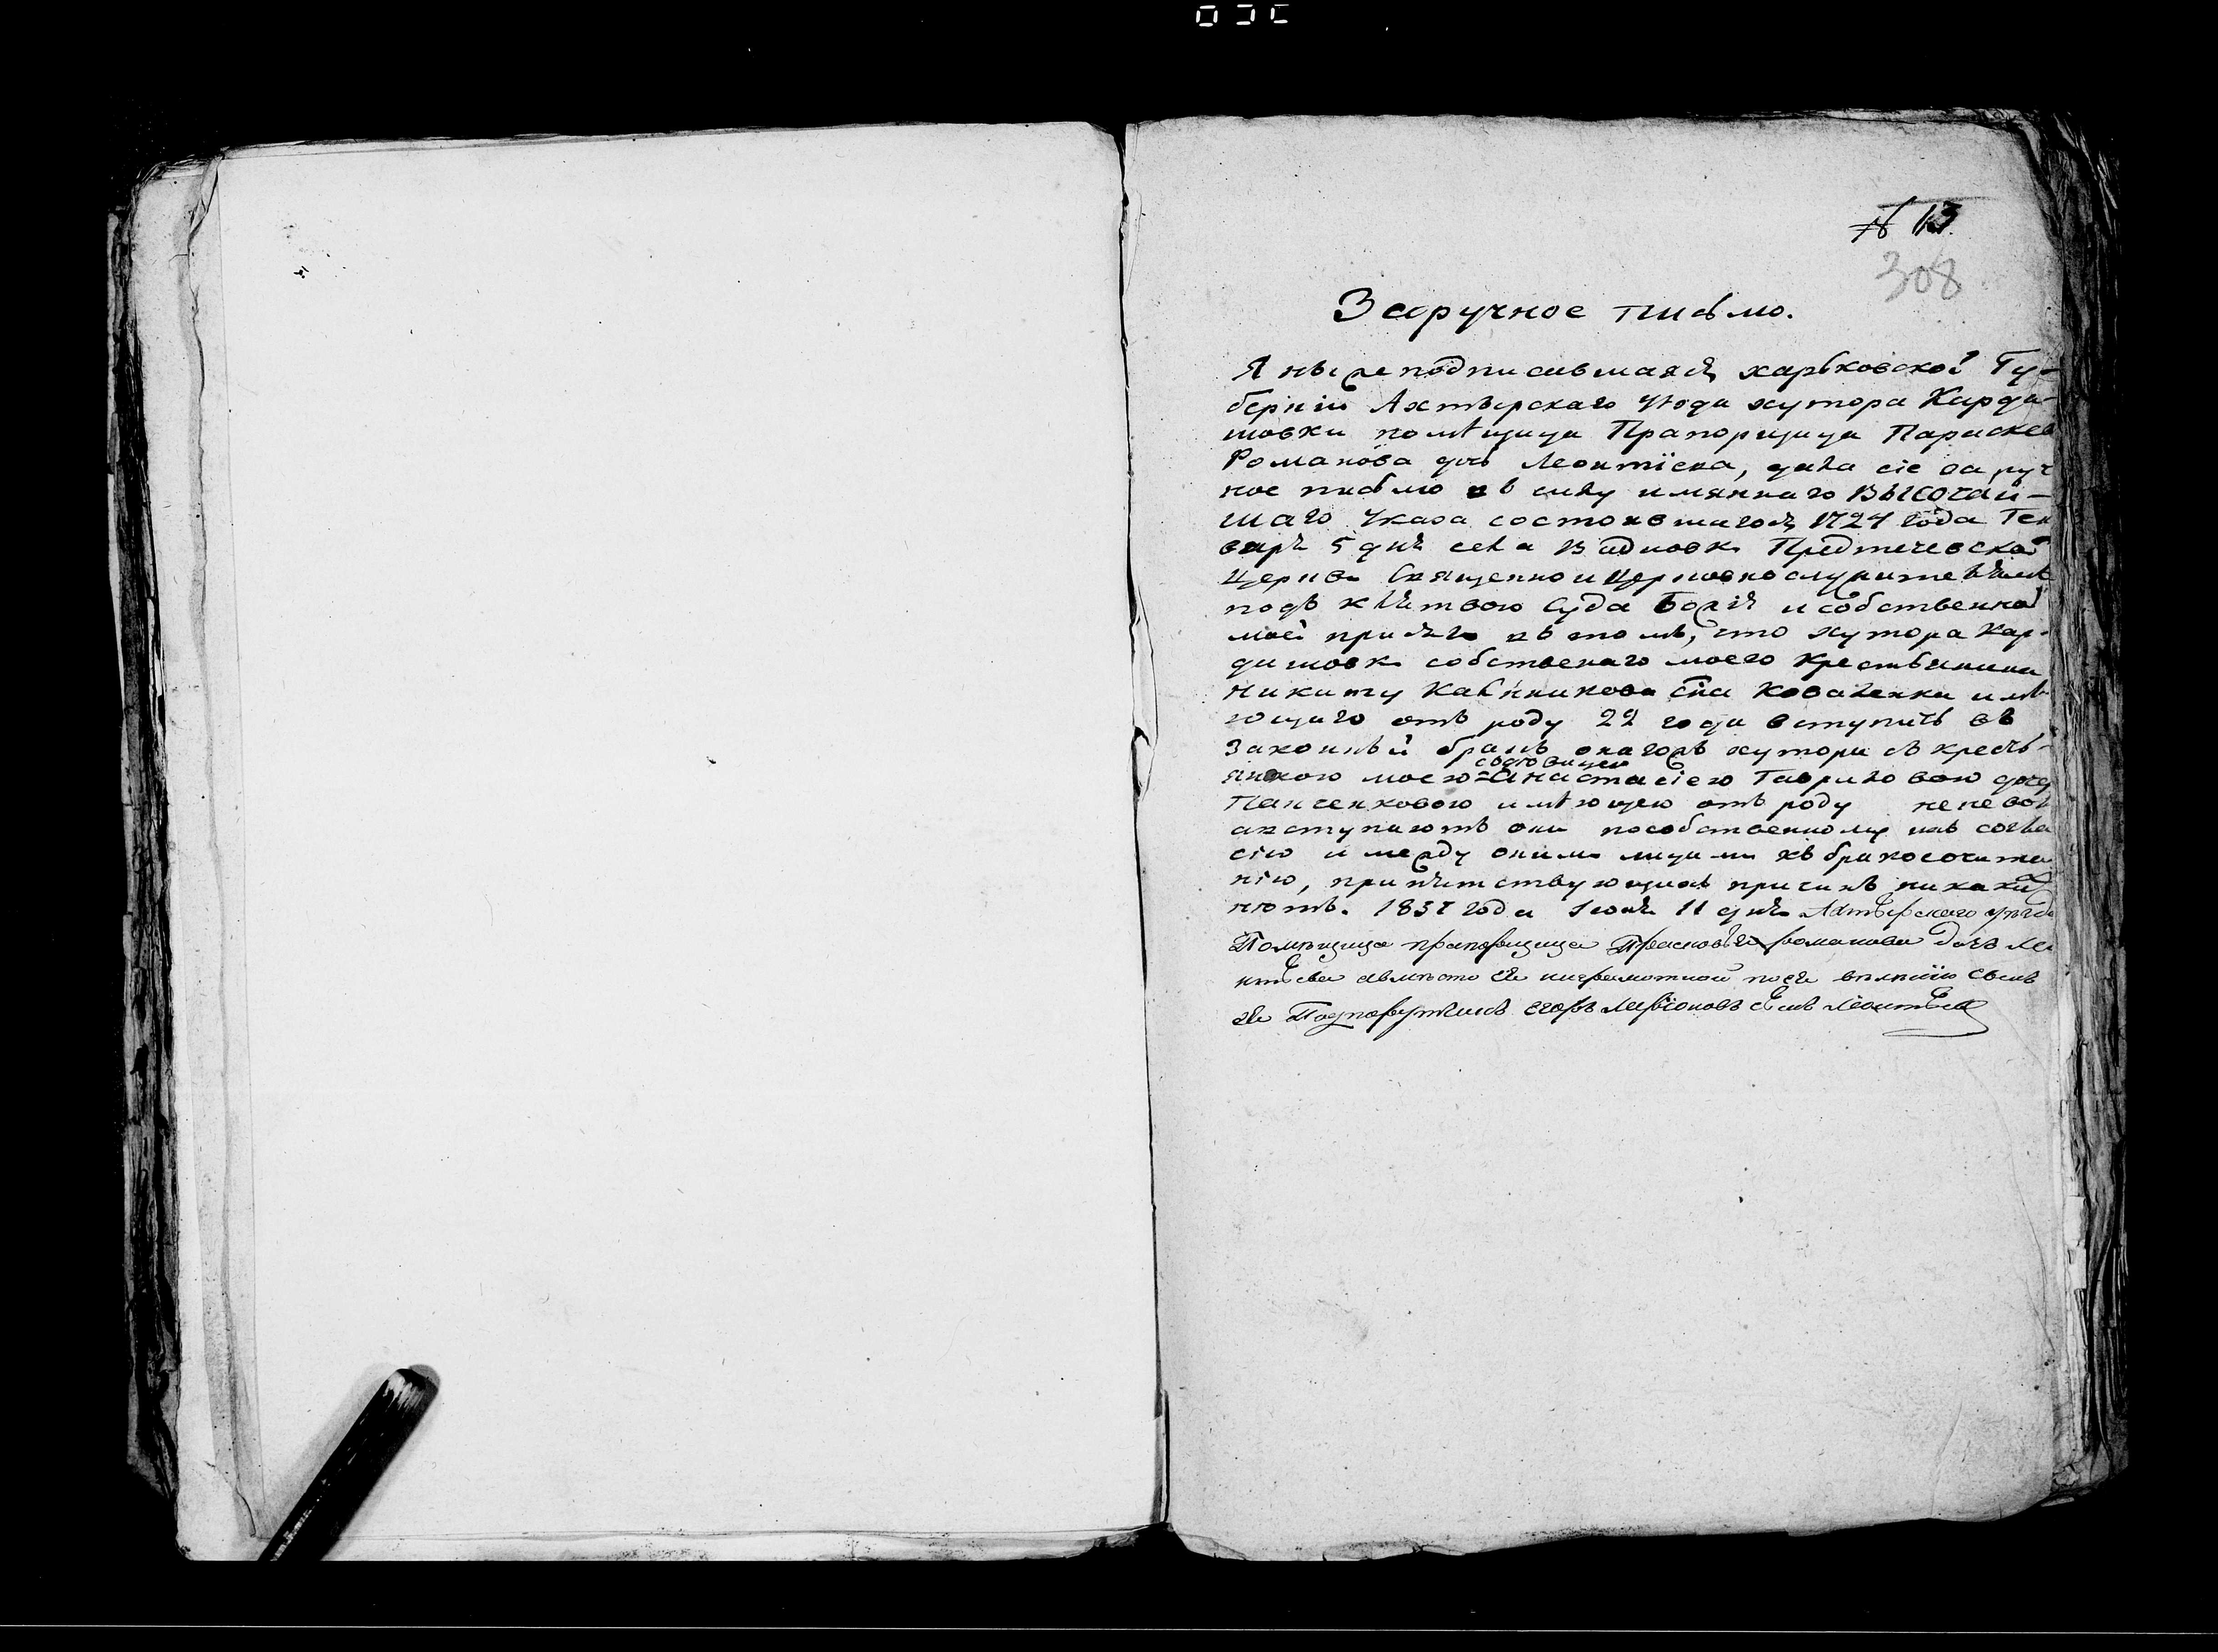 № 13.
308
Заручное письмо.
Я нижеподписавшаяся харьковской Гу-
берніи Ахтырскаго уѣзда хутора Карда-
шовки помѣщица Прапорщица Параскев
Романова дочь Леонтіева, дала сіе заруч
ное письмо въ силу имяннаго ВЫСОЧАЙ-
шаго Указа состоявшагося 1724 года Ген
варя 5 дня села Предтечевской
Церкви Священно и Церковнослужителямъ
подъ клятвою Суда Божія и собственной
моей присяги въ томъ, что хутора Кар-
дашовки собственаго моего крестьянина
Никиту сна Коваленка имѣ
ющаго отъ роду 22 года вступить въ
законный бракъ онагожъ хутора съ кресть-
янкою моею Анастасіею Гавриловою дочер
Панченковою имѣющею отъ роду не не вол
а вступаютъ они пособственному ихъ согла
сію и между оными лицами къ бракосочита
нію, припятствующихъ причинъ никаких
нютъ. 1831 года Іюня 11 дня Ахтырскаго уѣзда
Помѣщица прапорщица Прасковья романова дочь Ле
нтьева авмѣсто ея ниграмотной поея велѣнію сынъ
ея Подпорутчикъ Егоръ сынъ Леонтьев